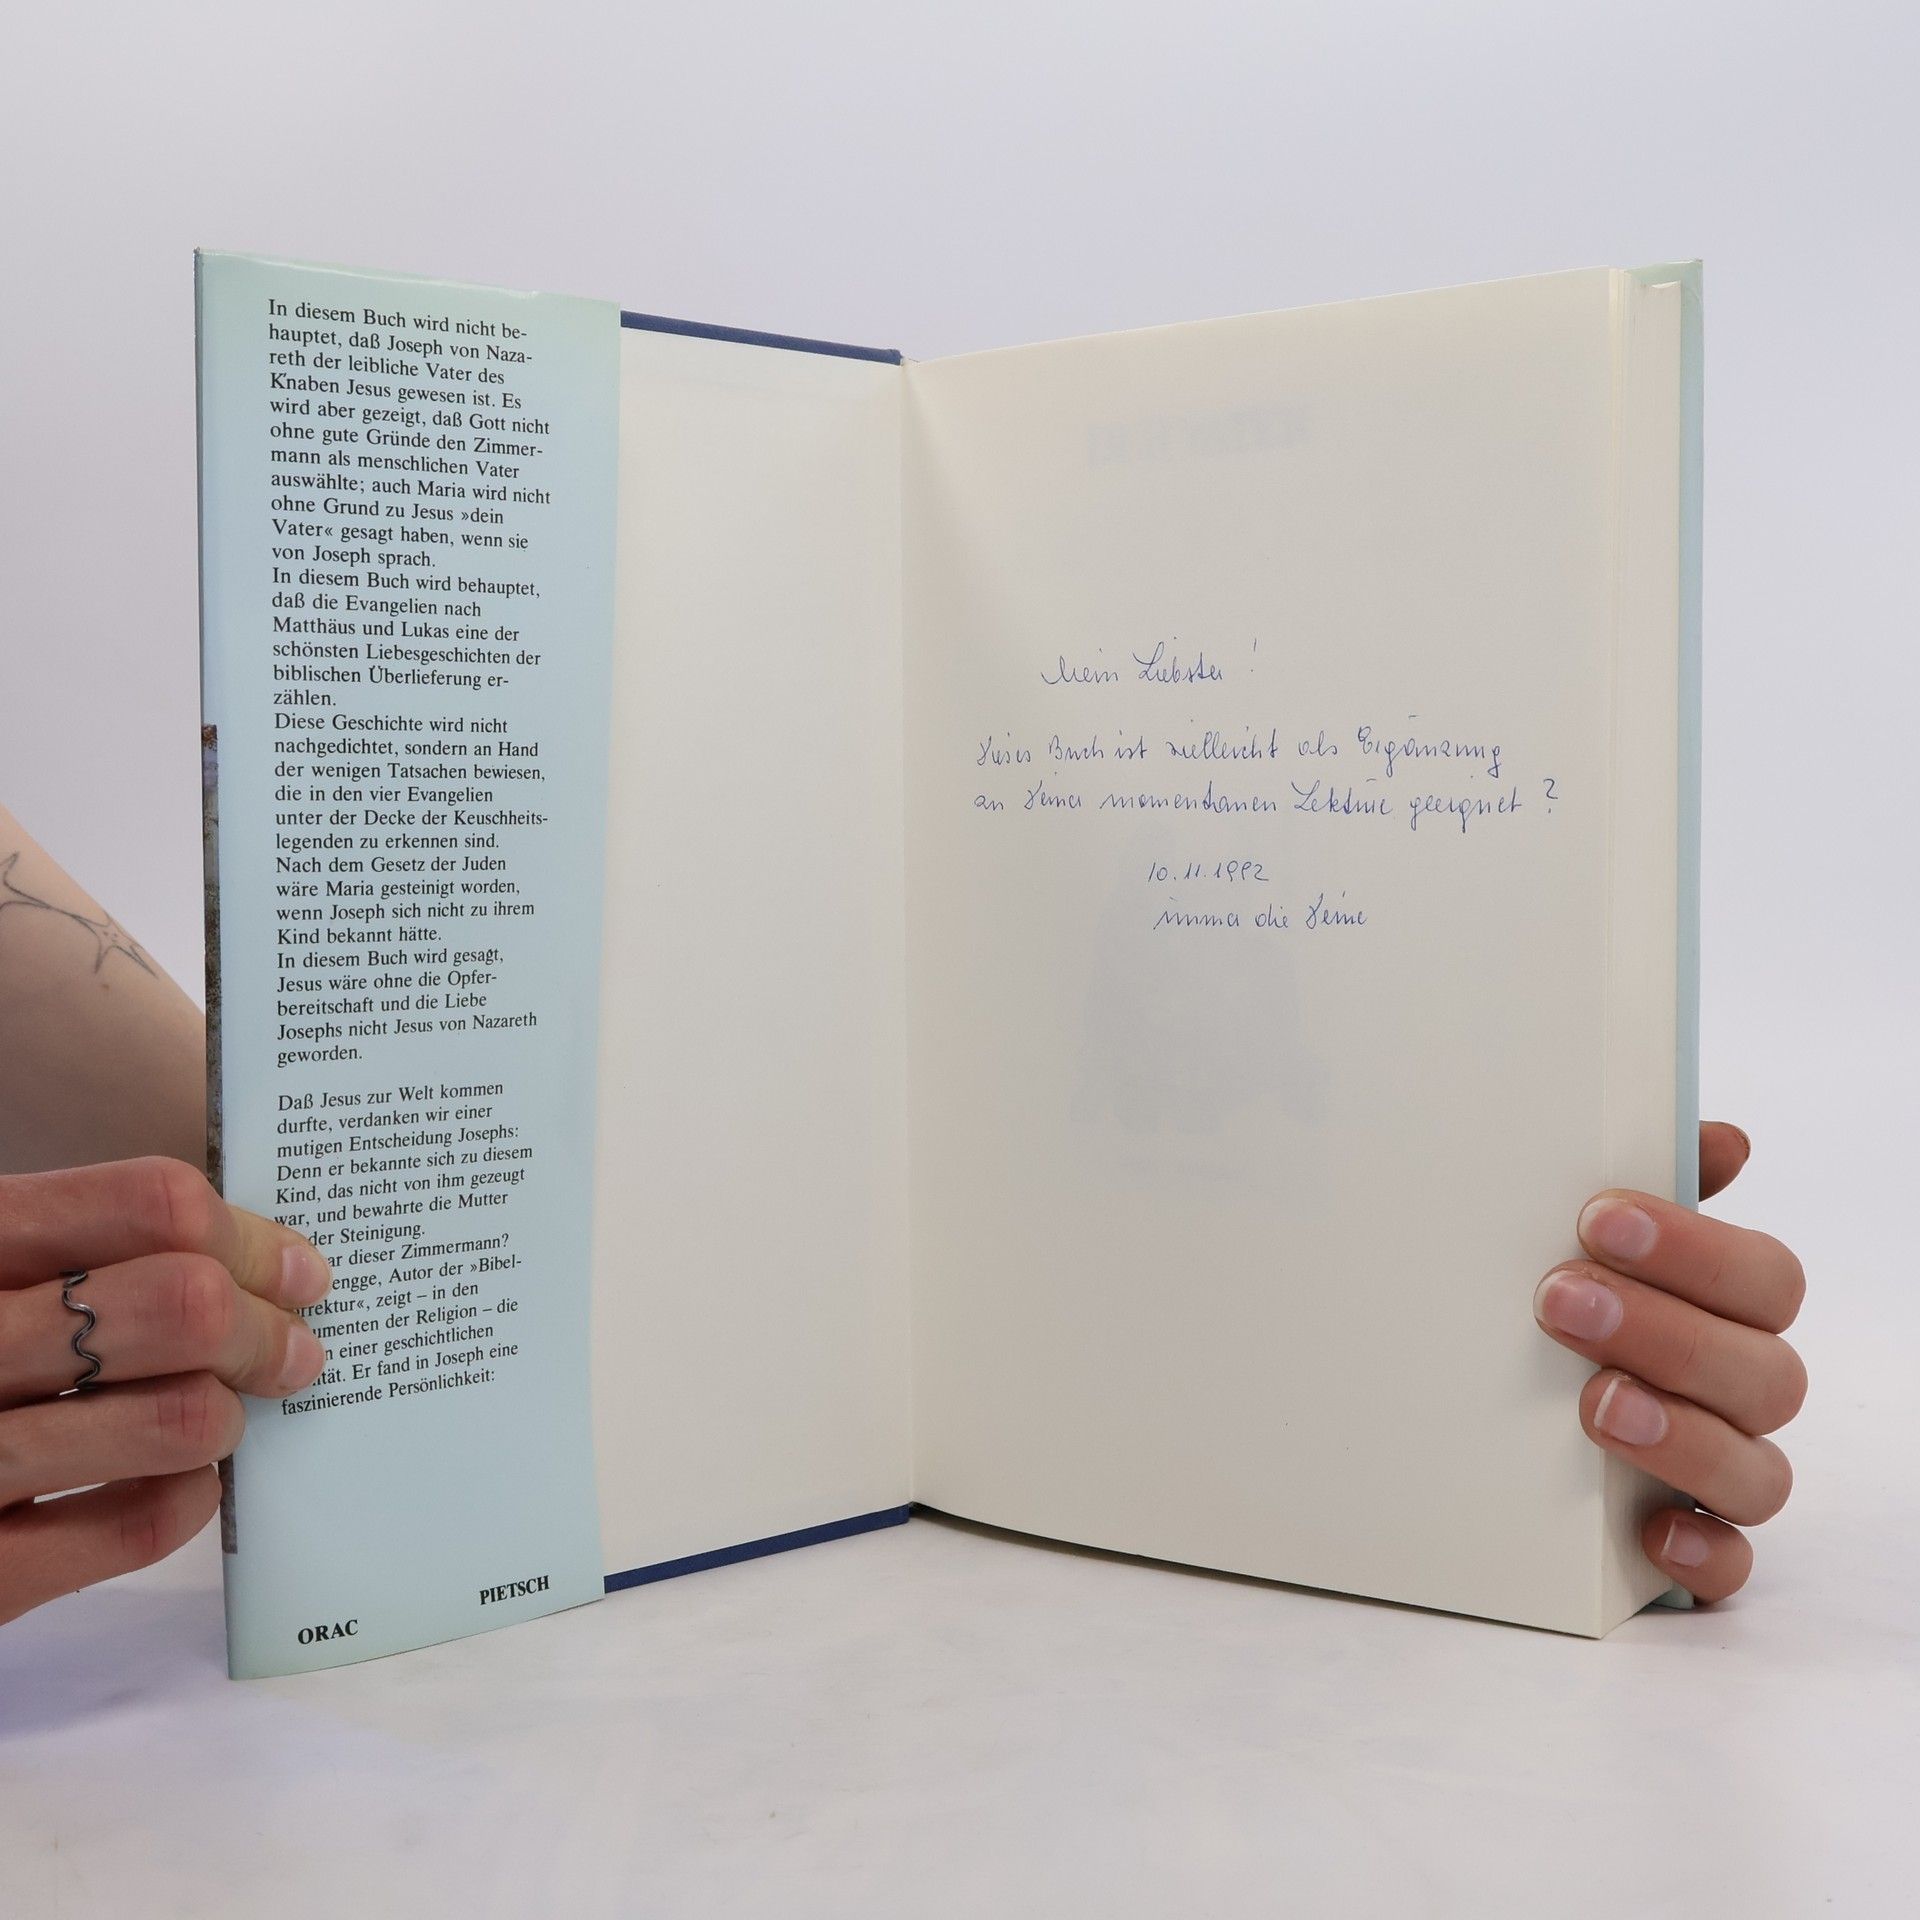 In diesem Buch wird nicht be-
hauptet, daß Joseph von Naza-
reth der leibliche Vater des
Knaben Jesus gewesen ist. Es
wird aber gezeigt, daß Gott nicht
ohne gute Gründe den Zimmer-
mann als menschlichen Vater
auswählte; auch Maria wird nicht
ohne Grund zu Jesus »dein
Vater« gesagt haben, wenn sie
von Joseph sprach.
In diesem Buch wird behauptet,
daß die Evangelien nach
Matthäus und Lukas eine der
schönsten Liebesgeschichten der
biblischen Überlieferung er-
zählen.
Diese Geschichte wird nicht
nachgedichtet, sondern an Hand
der wenigen Tatsachen bewiesen,
die in den vier Evangelien
unter der Decke der Keuschheits-
legenden zu erkennen sind.
Nach dem Gesetz der Juden
wäre Maria gesteinigt worden,
wenn Joseph sich nicht zu ihrem
Kind bekannt hätte.
In diesem Buch wird gesagt,
Jesus wäre ohne die Opfer-
bereitschaft und die Liebe
Josephs nicht Jesus von Nazareth
geworden.
Daß Jesus zur Welt kommen
durfte, verdanken wir einer
mutigen Entscheidung Josephs:
Denn er bekannte sich zu diesem
Kind, das nicht von ihm gezeugt
war, und bewahrte die Mutter
der Steinigung.
ar dieser Zimmermann?
engge, Autor der »Bibel-
rrektur«, zeigt – in den
umenten der Religion – die
n einer geschichtlichen
ität. Er fand in Joseph eine
faszinierende Persönlichkeit:
ORAC PIETSCH
Mein Liebster!
Dieses Buch ist vielleicht als Ergänzung
an Deiner momentanen Lektüre geeignet?
10.11.1992
immer die Deine